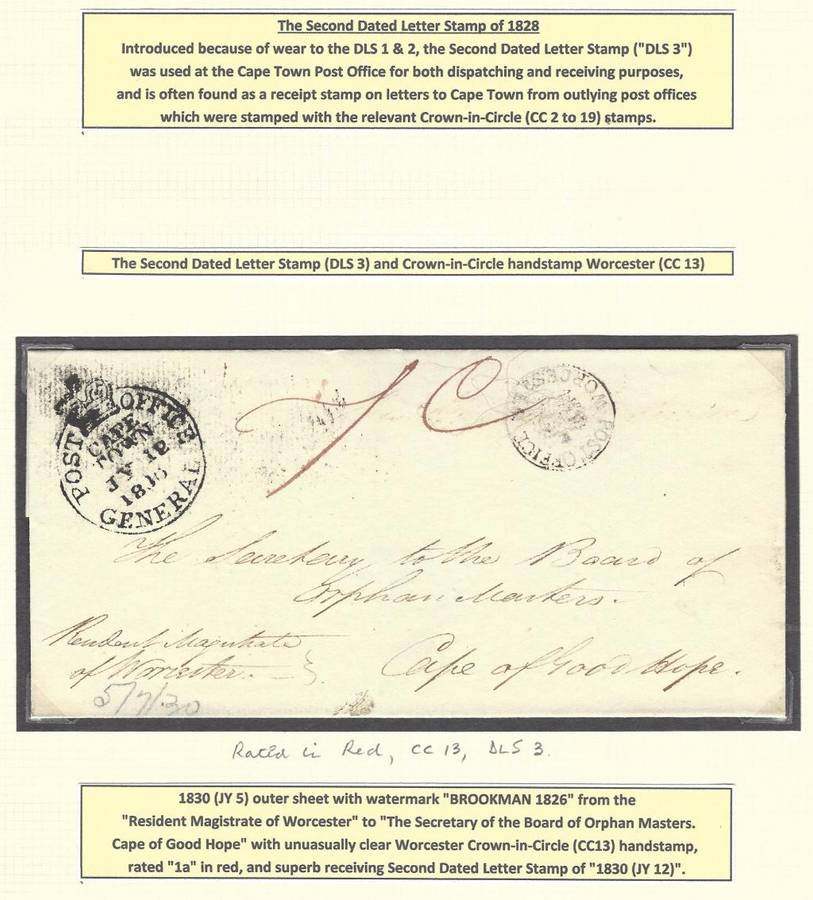 The Second Dated Letter Stamp of 1828
Introduced because of wear to the DLS 1 & 2, the Second Dated Letter Stamp ("DLS 3")
was used at the Cape Town Post Office for both dispatching and receiving purposes,
and is often found as a receipt stamp on letters to Cape Town from outlying post offices
which were stamped with the relevant Crown-in-Circle (CC 2 to 19) stamps.
The Second Dated Letter Stamp (DLS 3) and Crown-in-Circle handstamp Worcester (CC 13)
POST OFFICE
CAPE
TOWN
JY 12
GENERAL
POST OFFICE
The Secretary to the Board of
Orphan Masters.
Resident Magistrate
of Worcester.
Cape of Good Hope.
5/7/30
Rated in Red, CC 13, DLS 3.
1830 (JY 5) outer sheet with watermark "BROOKMAN 1826" from the
"Resident Magistrate of Worcester" to "The Secretary of the Board of Orphan Masters.
Cape of Good Hope" with unuasually clear Worcester Crown-in-Circle (CC13) handstamp,
rated "1a" in red, and superb receiving Second Dated Letter Stamp of "1830 (JY 12)".